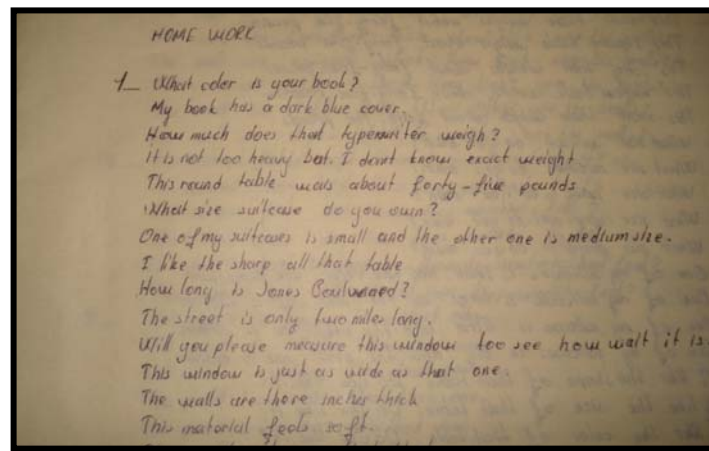 HOME WORK
1_ What color is your book?
My book has a dark blue cover.
How much does that typewriter weigh?
it is not too heavy but. I dont know exact weight
This round table weis about forty-five pounds
What size suitcase do you own?
One of my suitcases is small and the other one is medium size.
I like the sharp all that table
How long is Jones
The street is only two miles long.
Will you please measure this window too see how wait it is
This window is just as wide as that one.
The walls are there inches thick
This material feels soft.